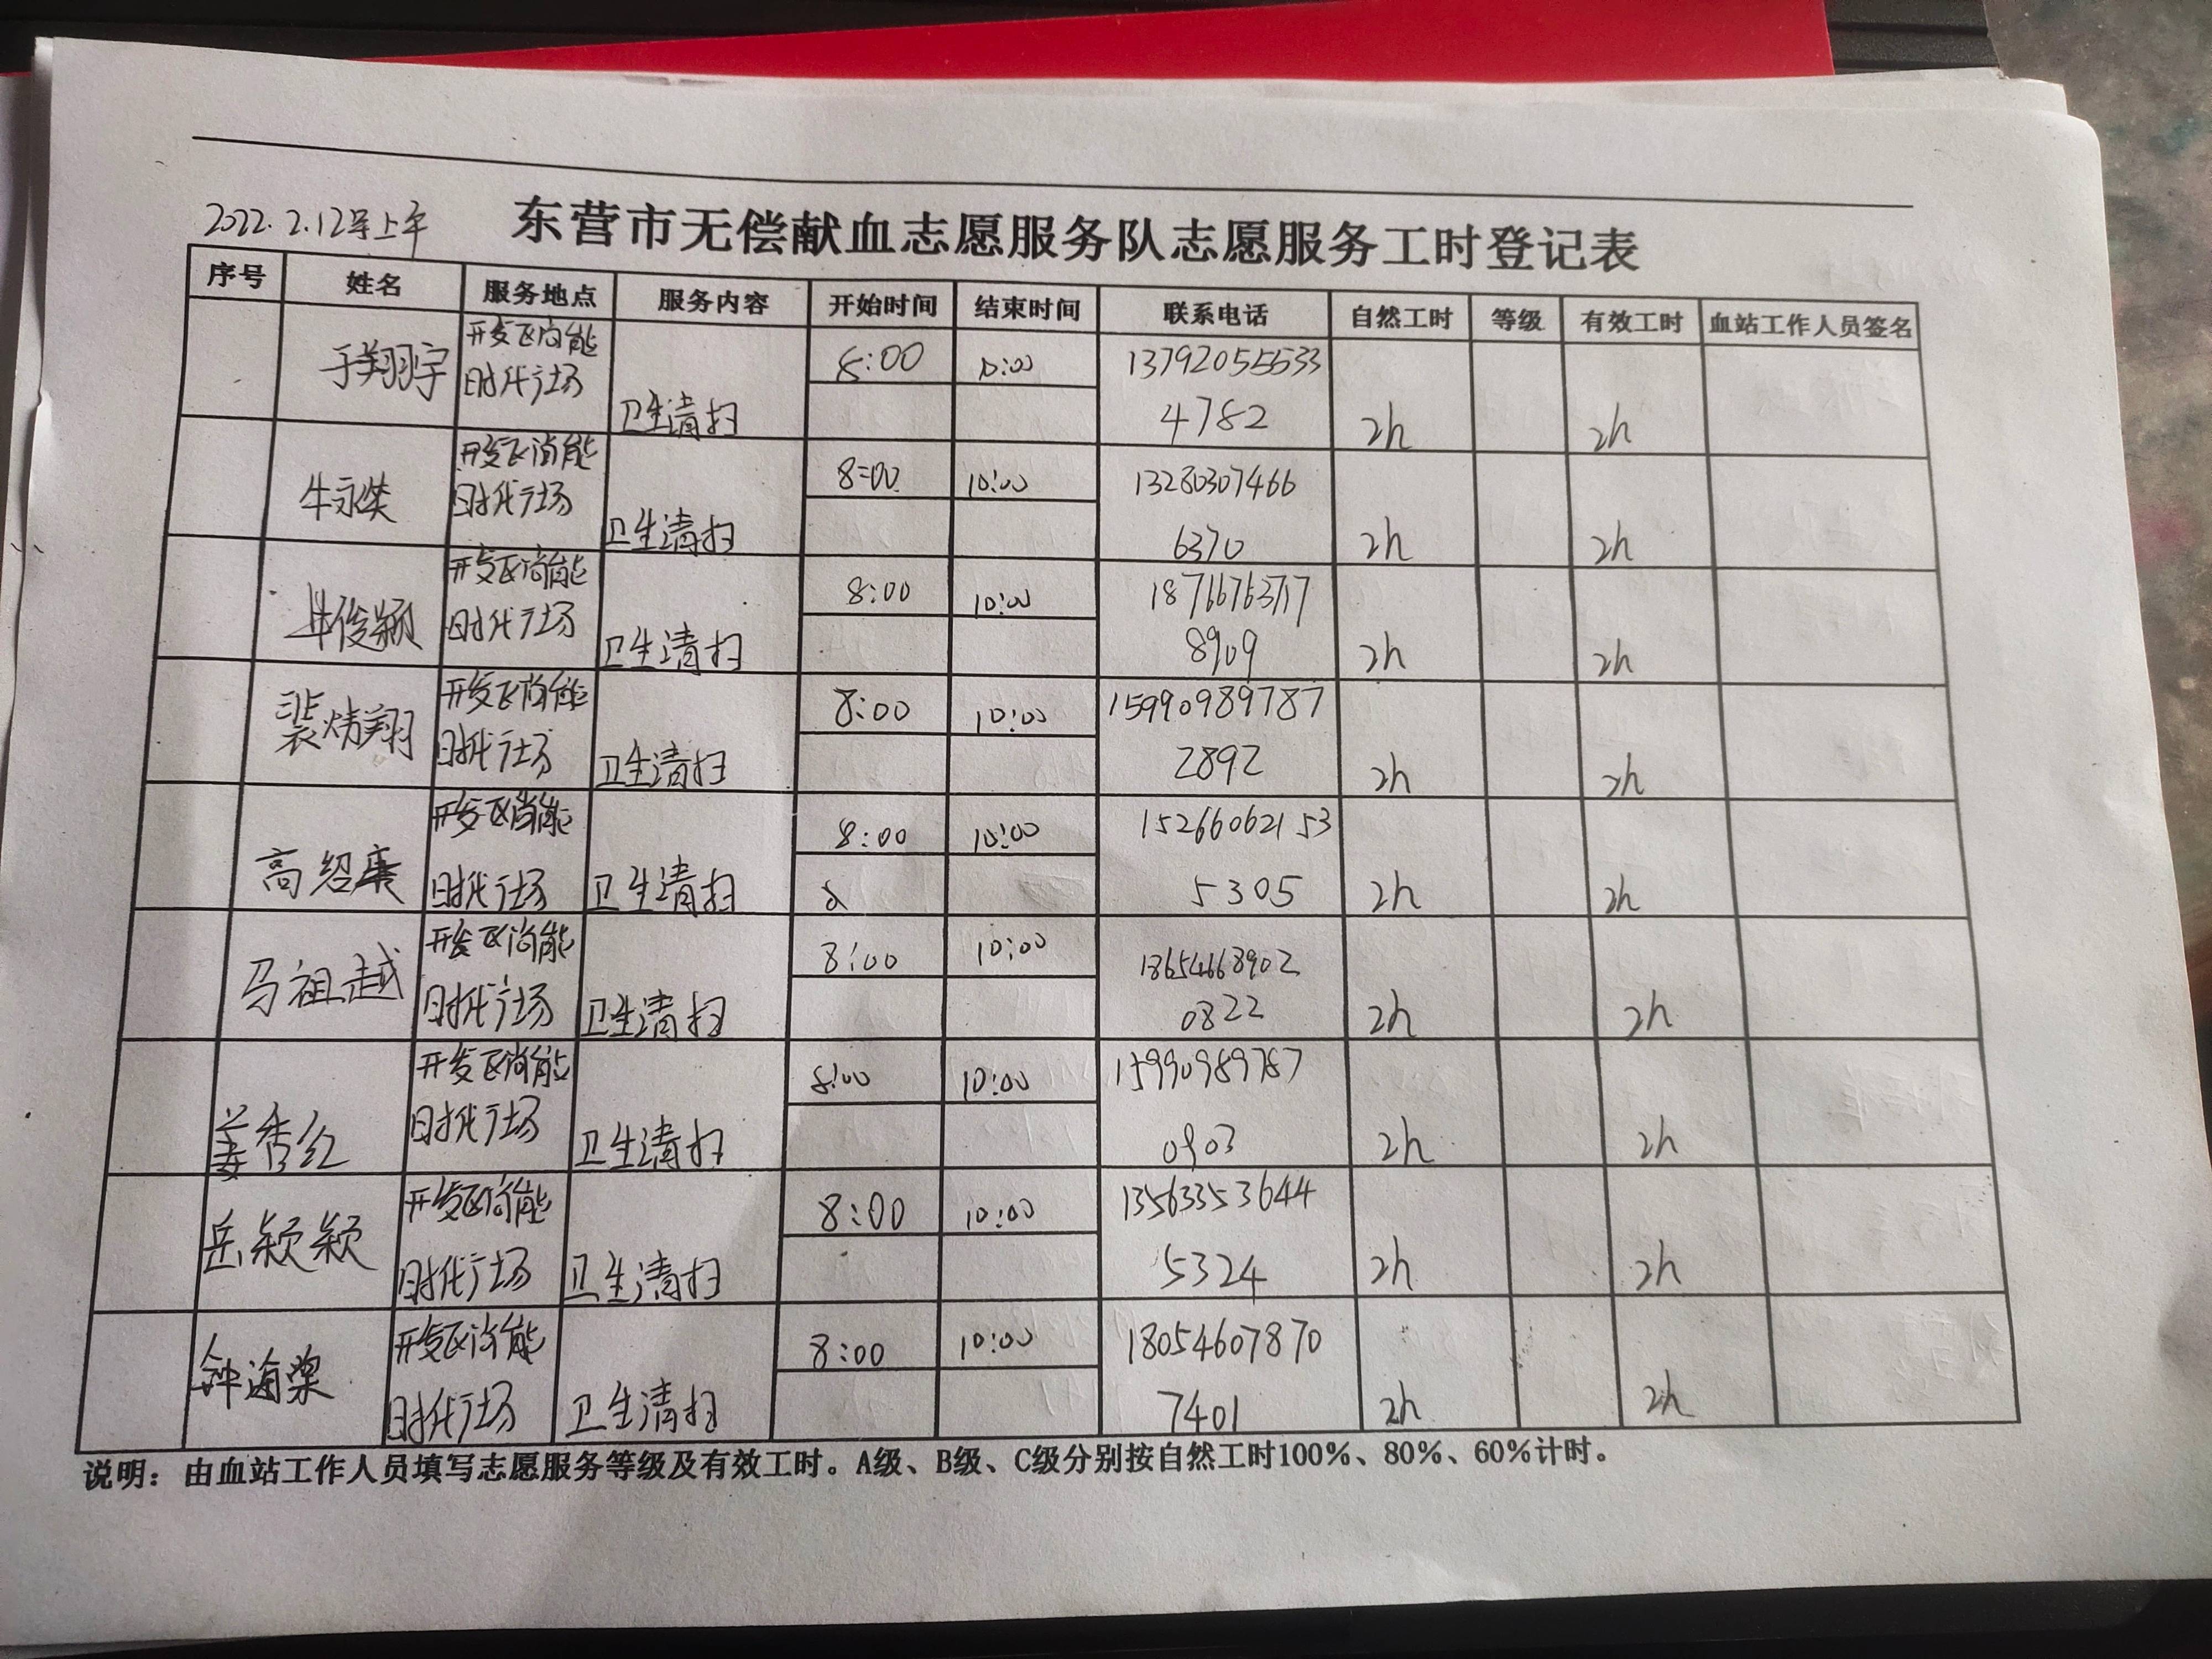 2022.2.12号上午
东营市无偿献血志愿服务队志愿服务工时登记表
序号 姓名 服务地点 服务内容 开始时间 结束时间 联系电话 自然工时 等级 有效工时 血站工作人员签名
于翔宇 开发区尚能 8:00 10:00 13792055533
时代广场 卫生清扫 4782 2h 2h
牛永 开发区尚能 8:00 10:00 13280307466
时代广场 卫生清扫 6370 2h 2h
牛俊颖 开发区尚能 8:00 10:00 18766763717
时代广场 卫生清扫 8909 2h 2h
裴炜翔 开发区尚能 8:00 10:00 15990989787
时代广场 卫生清扫 2892 2h 2h
高绍康 开发区尚能 8:00 10:00 15266062153
时代广场 卫生清扫 5305 2h 2h
马祖越 开发区尚能 8:00 10:00 13654668902
时代广场 卫生清扫 0822 2h 2h
姜秀红 开发区尚能 8:00 10:00 15990989787
时代广场 卫生清扫 0903 2h 2h
岳颖颖 开发区尚能 8:00 10:00 13563353644
时代广场 卫生清扫 5324 2h 2h
钟海棠 开发区尚能 8:00 10:00 18054607870
时代广场 卫生清扫 7401 2h 2h
说明：由血站工作人员填写志愿服务等级及有效工时。A级、B级、C级分别按自然工时100%、80%、60%计时。